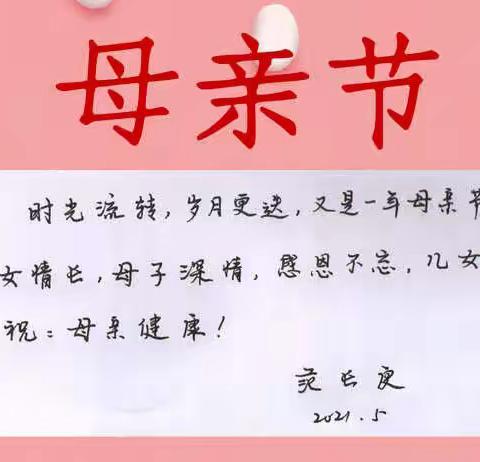 母亲节
时光流转,岁月更迭,又是一年母亲节
女情长,母子深情,感恩不忘,儿女
祝:母亲健康!
范长更
2021.5